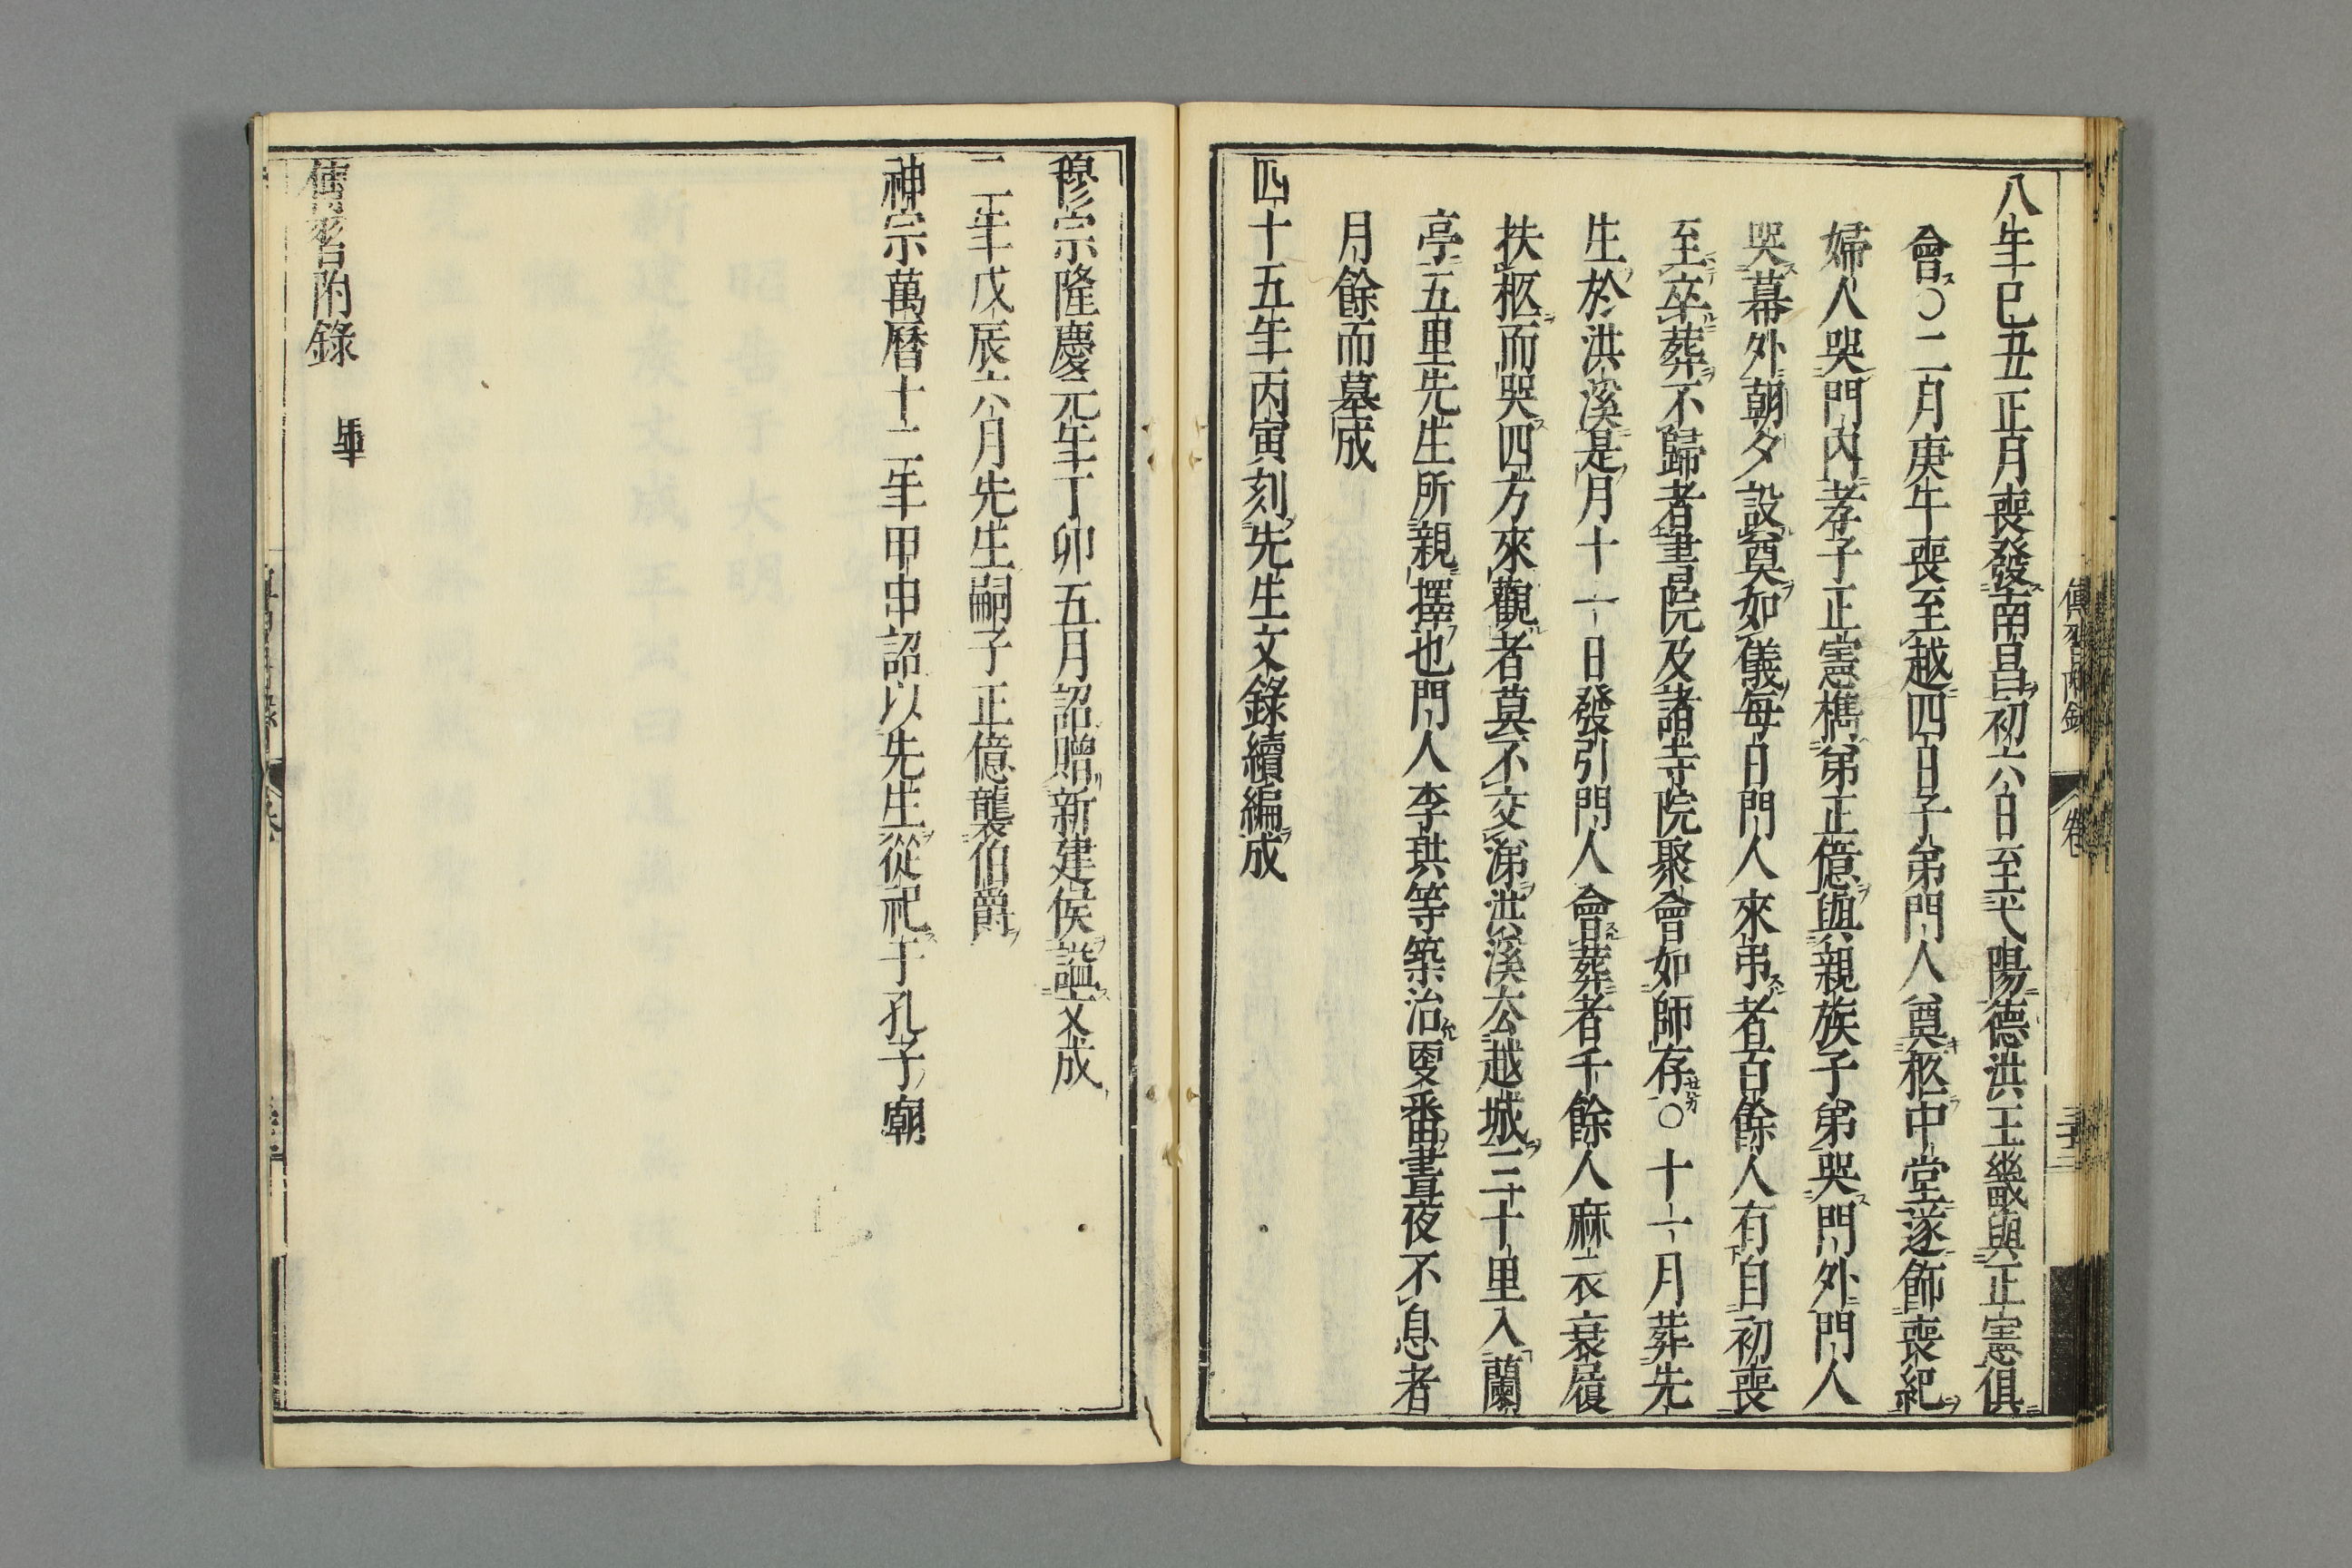 八年已丑正月喪發南昌初六日至弋陽德洪王畿與正憲俱
會〇二月庚午喪至越四日子弟門人奠柩中堂遂飾喪紀
婦人哭門內孝子正憲携弟正億與親族子弟哭門外門人
哭幕外朝夕設奠如儀每日門人來弔者百餘人有自初喪
至卒葬不歸者書院及諸寺院聚會如師存〇十一月葬先
生於洪溪是月十一日發引門人會葬者千餘人麻衣衰屨
扶柩而哭四方來觀者莫不交涕洪溪去越城三十里入蘭
亭五里先生所親擇也門人李珙等築治更番晝夜不息者
月餘而墓成
四十五年丙寅刻先生文錄續編成
傳習附錄
卷
穆宗隆慶元年丁卯五月詔贈新建侯謚文成
二年戊辰六月先生嗣子正億襲伯爵
神宗萬曆十二年甲申詔以先生從祀于孔子廟
傳習附錄 畢